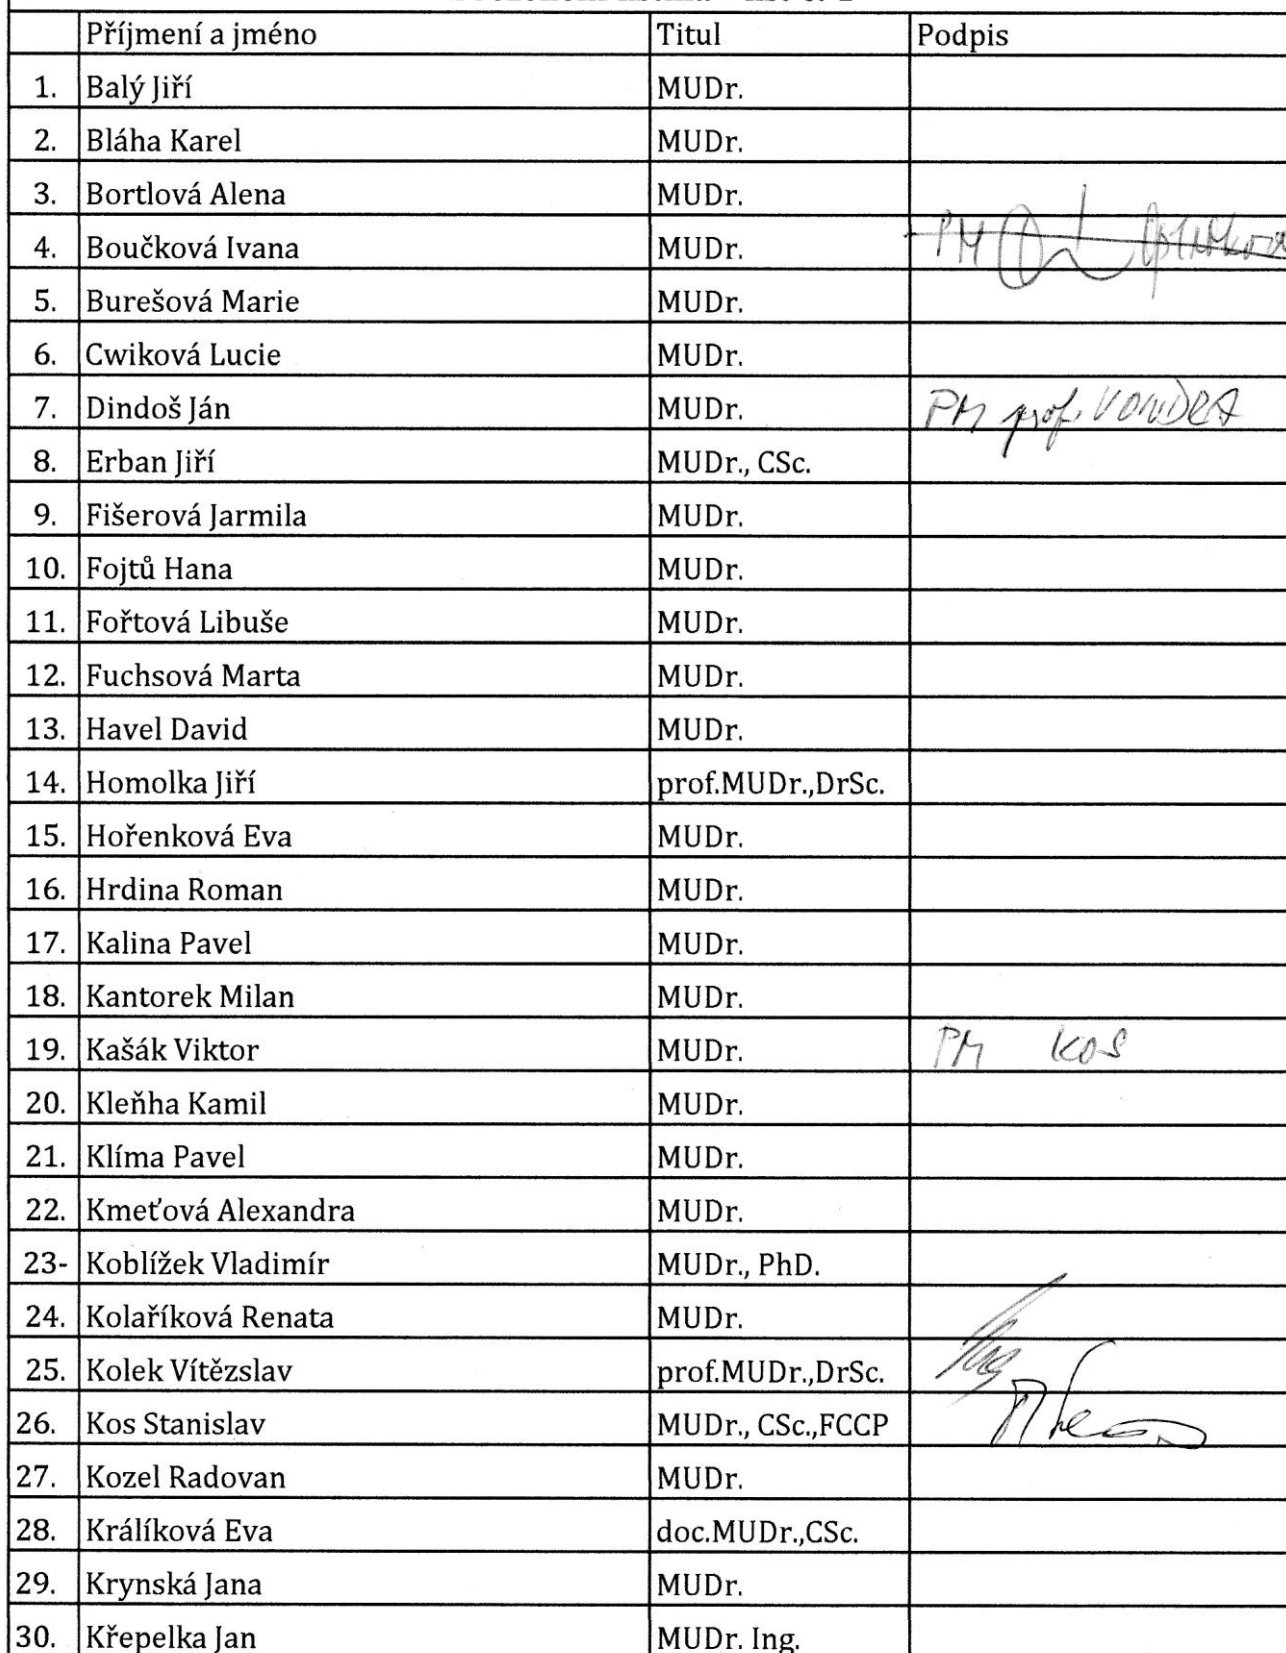 Příjmení a jméno Titul Podpis
1. Balý Jiří MUDr.
2. Bláha Karel MUDr.
3. Bortlová Alena MUDr.
4. Boučková Ivana MUDr. PM
5. Burešová Marie MUDr.
6. Cwiková Lucie MUDr.
7. Dindoš Ján MUDr. PM prof. VONDRA
8. Erban Jiří MUDr., CSc.
9. Fišerová Jarmila MUDr.
10. Fojtů Hana MUDr.
11. Fořtová Libuše MUDr.
12. Fuchsová Marta MUDr.
13. Havel David MUDr.
14. Homolka Jiří prof.MUDr.,DrSc.
15. Hořenková Eva MUDr.
16. Hrdina Roman MUDr.
17. Kalina Pavel MUDr.
18. Kantorek Milan MUDr.
19. Kašák Viktor MUDr. PM KOS
20. Kleňha Kamil MUDr.
21. Klíma Pavel MUDr.
22. Kmeťová Alexandra MUDr.
23- Koblížek Vladimír MUDr., PhD.
24. Kolaříková Renata MUDr.
25. Kolek Vítězslav prof.MUDr.,DrSc.
26. Kos Stanislav MUDr., CSc.,FCCP
27. Kozel Radovan MUDr.
28. Králíková Eva doc.MUDr.,CSc.
29. Krynská Jana MUDr.
30. Křepelka Jan MUDr. Ing.